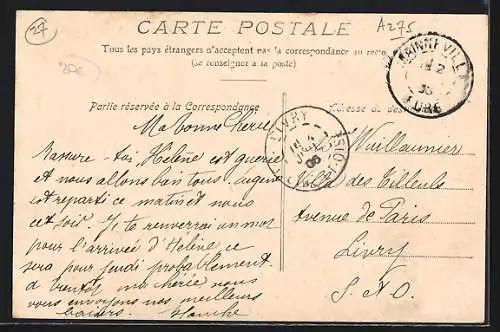 27
CARTE POSTALE
A275
Tous les pays étrangers n'acceptent pas la correspondance au recto
(se renseigner à la poste)
20€
EURE
Partie réservée à la Correspondance
Adresse du des
LIVRY
06
Ma bonne Chérie
Rassure-toi, Hélène est guérie
et nous allons bien tous. Eugène
est reparti ce matin et nous
cet soir. Je te renverrai un mot
pour l'arrivée d'Hélène ce
sera pour jeudi probablement.
à bientôt ma chérie nous
vous envoyons nos meilleurs
baisers. Blanche
Vuillaumier
Villa des Tilleuls
Avenue de Paris
Livry
S. & O.